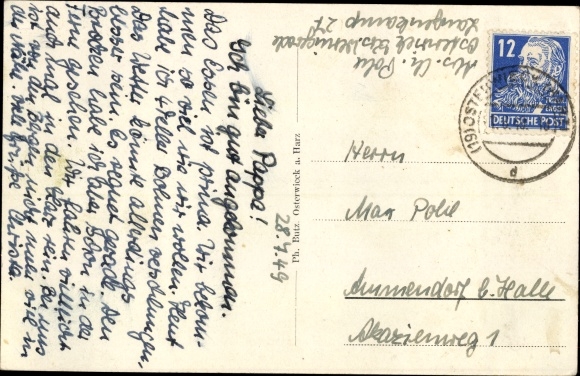 28.7.49
Liebe Pappa!
Ich bin gut angekommen.
Das Essen ist prima. Wir bekom-
men so viel wie wir wollen. Heut
habe ich 4 Teller Bohnen verschlungen.
Das Wetter könnte allerdings
besser sein. Es regnet gerade. Den
Brocken habe ich schon in der
Ferne gesehen. Wir fahren vielleicht
auch mal in den Harz rein. Bei uns
ist von den Bergen nicht viel in
der Nähe. Viele Grüße Christa.
Abs. Ch. Polie
Osterwieck
Langenkamp 27
12
DEUTSCHE POST
(19) OSTERWIECK
d
Ph. Butz Osterwieck a. Harz
Herrn
Max Polie
Ammendorf b. Halle
Akazienweg 1